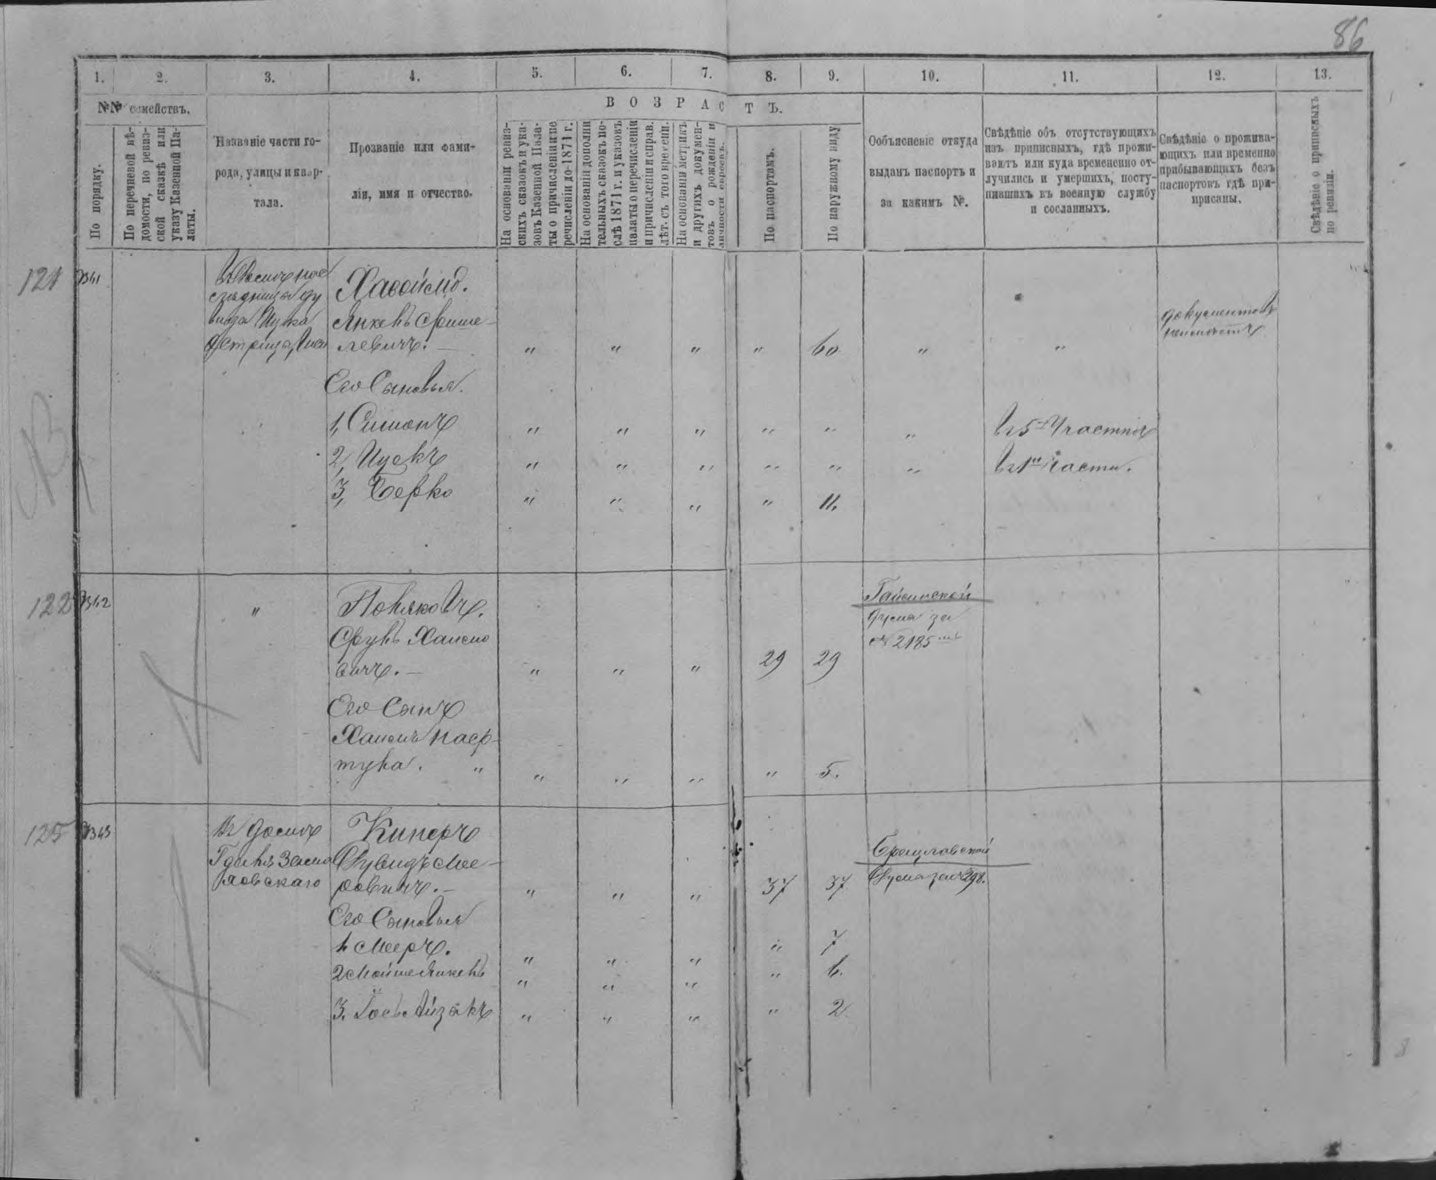 86
1. 2. 3. 4. 5. 6. 7. 8. 9. 10. 11. 12. 13.
№№ семействъ.
В О З Р А С Т Ъ.
По порядку.
По перечневой вѣ-
домости, по ревиз-
ской сказкѣ или
указу Казенной Па-
латы.
Названіе части го-
рода, улицы и квар-
тала.
Прозваніе или фами-
лія, имя и отчество.
На основаніи ревиз-
скихъ сказокъ и ука-
зовъ Казенной Пала-
ты о причисленіи и пе
речисленіи до-1871 г.
На основаніи дополни
тельныхъ сказокъ по-
слѣ 1871 г. и указовъ
палаты о перечисленіи
и причисленіи и справ.
лѣт. съ того времени.
На основаніи метрикъ
и другихъ докумен-
товъ о рожденіи и
личности евреевъ.
По паспортамъ.
По наружному виду
Объясненіе откуда
выданъ паспортъ и
за какимъ №.
Свѣдѣніе объ отсутствующихъ
изъ приписныхъ, гдѣ прожи-
ваютъ или куда временно от-
лучились и умершихъ, посту-
пившихъ въ военную службу
и сосланныхъ.
Свѣдѣніе о прожива-
ющихъ или временно
прибывающихъ безъ
паспортовъ гдѣ при-
писаны.
Свѣдѣніе о приписныхъ
по ревизіи.
121
Янкель Сруле-
левичъ. — " " " " 60 " "
документовъ
Его Сыновья.
1, Симонъ " " " " " " въ 5й Части
2, Ицекъ " " " " " " въ 1й части.
3, Берко " " " " 11.
122 " Поляковъ.
Срулъ Хаимо
вичъ. — " " " 29 29
Гайсинской
Дума за
№ 2185
Его Сынъ
Хаимъ
" " " " " 5.
125 въ домѣ Киперъ
Дувидъ Мее-
ровичъ. — " " " 37 37
Брацлавской
Дума за № 298.
Его Сыновья
1 Мееръ. " " " " 7
2 Мойше Янкель " " " " 6.
3, Іосъ Айзикъ " " " " 2